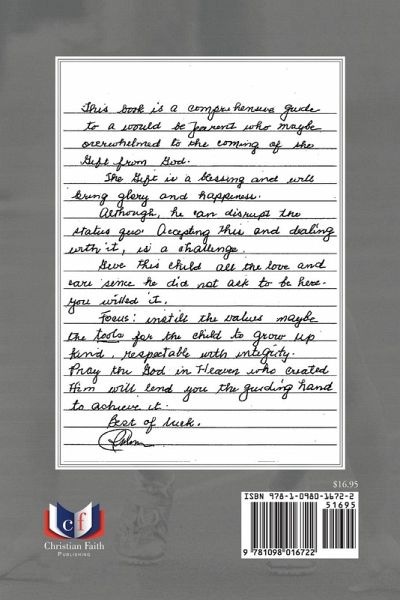 This book is a comprehensive guide
to a would be parent who maybe
overwhelmed to the coming of the
Gift from God.
The Gift is a blessing and will
bring glory and happiness.
Although, he can disrupt the
status quo. Accepting this and dealing
with it, is a challenge.
Give this child all the love and
care since he did not ask to be here.
you willed it.
Focus: instill the values maybe
the tools for the child to grow up
kind, respectable with integrity.
Pray the God in Heaven who created
Him will lend you the guiding hand
to achieve it.
Best of luck.
$16.95
ISBN 978-1-0980-1672-2
51695
9 781098 016722
cf
Christian Faith
Publishing